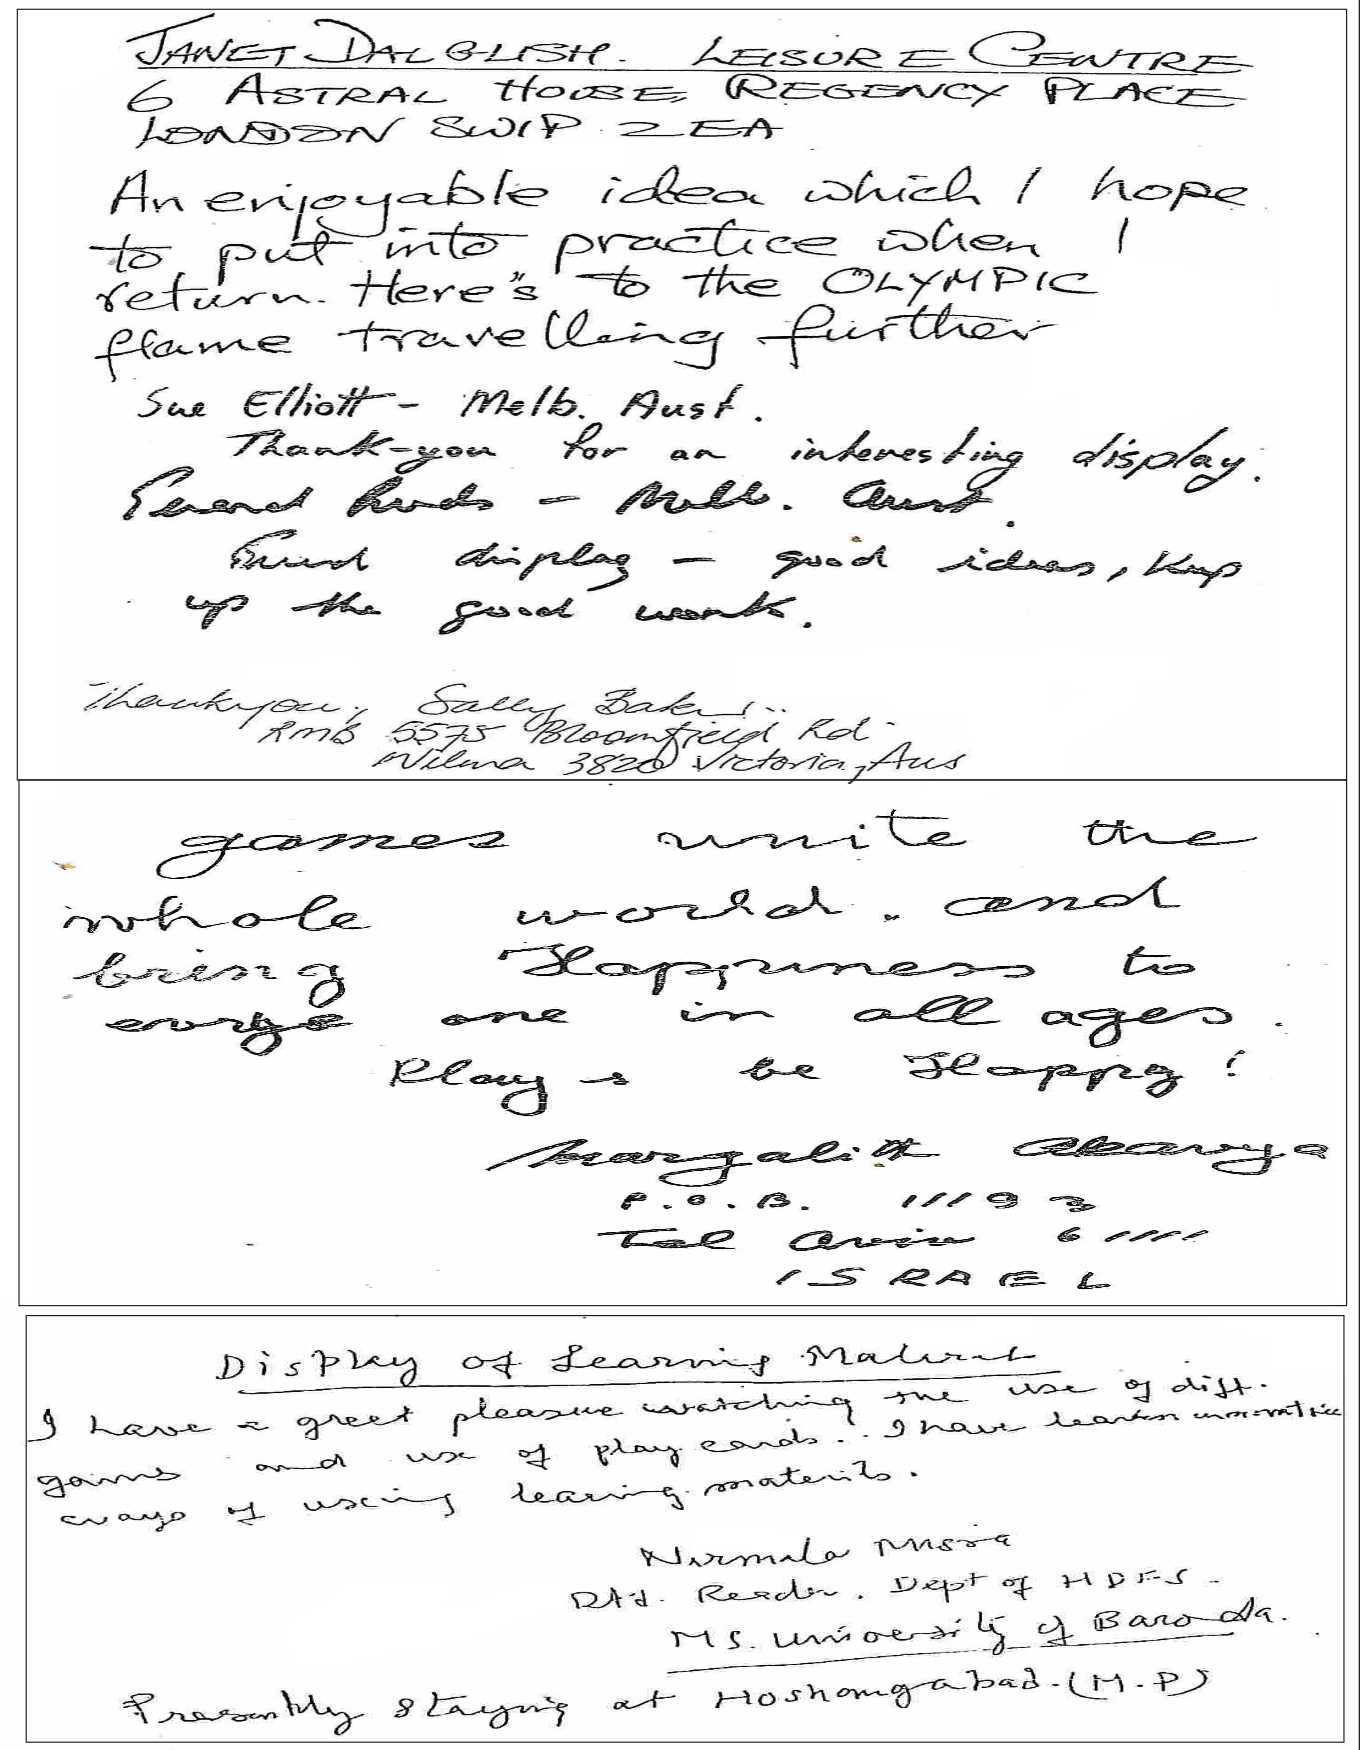 JANET DALGLISH. LEISURE CENTRE
6 ASTRAL HOUSE, REGENCY PLACE
LONDON SW1P 2EA
An enjoyable idea which I hope
to put into practice when I
return. Here's to the OLYMPIC
flame travelling further
Sue Elliott - Melb. Aust.
Thank-you for an interesting display.
- Melb. Aust.
display - good ideas, keep
up the good work.
Thankyou, Sally Baker
RMB 5575 Bloomfield Rd
Nilma 3820 Victoria, Aus
games unite the
whole world. and
bring Happiness to
everyone in all ages.
Play & be Happy!
Margalith Akavya
P.O.B. 11193
Tel Aviv 61111
ISRAEL
Display of Learning Material
I have a greet pleasue watching the use of diff.
gams and use of play cards. I have learnn innovative
ways of uscing learing materils.
Nirmala Misra
Rtd. Reader. Dept of HDFS.
MS. University of Baroda.
Presently staying at Hoshangabad. (M.P)